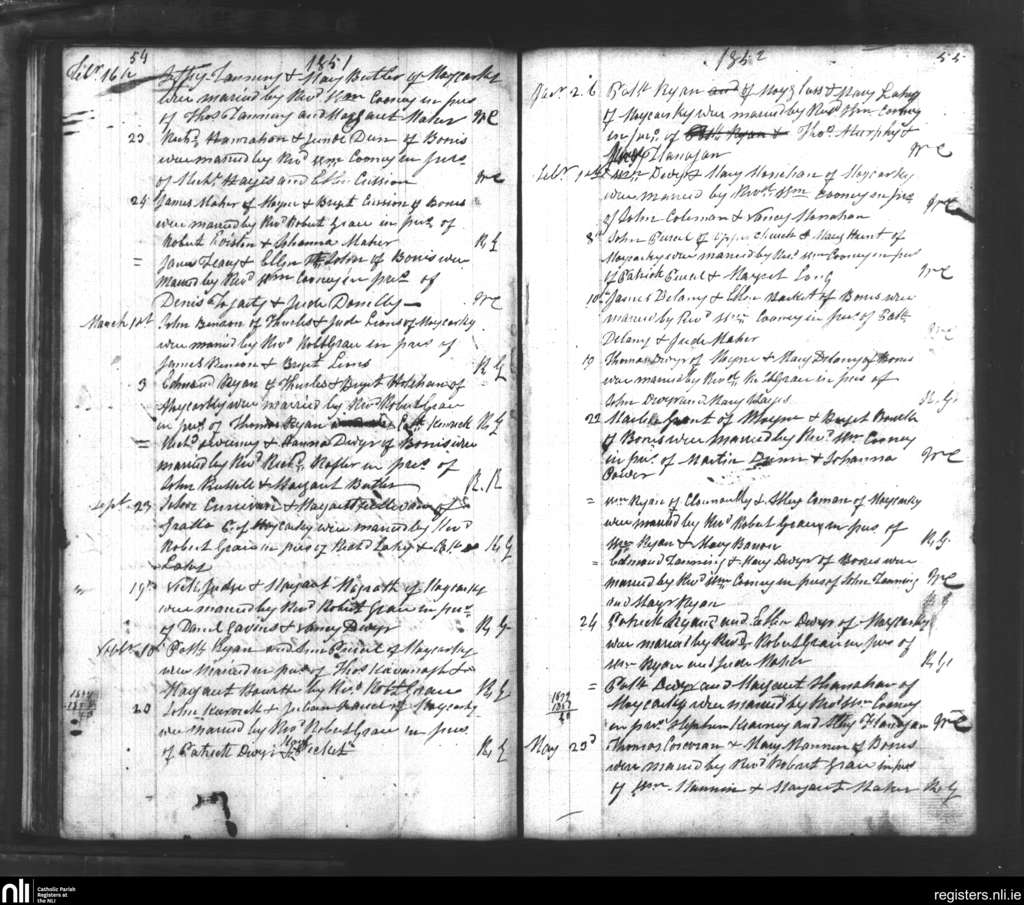 54
1851
Feb. 16th Jeffry Fanning & Mary Butler of Moycarky
were married by Revd. Wm Cooney in pres
of Thos. Fanning and Margaret Maher WC
23 Richd. Hanrahan & Jude Dunn of Boris
were married by Revd. Wm Cooney in pres.
of Michl. Hayes and Ellen
24 James Maher of Moyne & Bridget of Boris
were married by Revd. Robert Grace in pres. of
Robert & Johanna Maher RG
= James & Ellen of Boris were
married by Revd. Wm Cooney in pres. of
Denis Fogarty & Jude Donelly WC
March 1st John Benson of Thurles & Jude Lions of Moycarky
were married by Revd. Robt Grace in pres of
James Benson & Bridget Lions RG
3 Edmund Ryan of Thurles & Bridget of
Moycarky were married by Revd. Robert Grace
in pres. of Thomas Ryan & Cath RG
= Michl. Sweeney & Hanna Dwyer of Boris were
married by Revd. Richd. in pres. of
John Russell & Margaret Butler R.R
Sept. 23 & Margaret of
of Moycarky were married by Revd
Robert Grace in pres of Richd Lahy & Patt RG
Lahy
15th Judge & Margaret Magrath of Moycarky
were married by Revd Robert Grace in pres.
of Daniel & Nancy Dwyer RG
10 Patk Ryan and of Moycarky
were married in pres of Thos Kavanagh &
Margaret Hourke by Revd. Robt Grace RG
20 John & of Moycarky
were married by Revd. Robert Grace in pres.
of Patrick Dwyer & Mary RG
1852
55
Jan. 26 Patk Ryan of Moyglass & Mary Lahy
of Moycarky were married by Revd Wm Cooney
in pres. of Thos. Murphy &
Flanagan WC
Feb. Wm Dwyer & Mary Monehan of Moycarky
were married by Revd. Wm Cooney in pres
of John Coleman & Nancy Monahan WC
8th John Purcel of Upper Church & Mary Hunt of
Moycarky were married by Revd. Wm Cooney in pres
of Patrick Purcel & Margret Long WC
10th James Delany & Ellen Hacket of Boris were
married by Revd Wm Cooney in pres of Patk
Delany & Jude Maher WC
19 Thomas Dwyer of Moyne & Mary Delany of Boris
were married by Revd. Robt Grace in pres of
John Dwyer and Mary Hayes R.G.
22 Grant of Moyne & Bridget
of Boris were married by Revd. Wm Cooney
in pres. of Martin Dunn & Johanna WC
Power
= Wm Ryan of Clonoulty & Coman of Moycarky
were married by Revd Robert Grace in pres of
Wm Ryan & Mary RG
= Edmond Fanning & Mary Dwyer of Boris were
married by Revd Wm Cooney in pres of John Fanning WC
and Mary Ryan
24 Patrick Ryan and Ellen Dwyer of Moycarky
were married by Revd. Robert Grace in pres of
Wm Ryan and Jude Maher RG
= Patk Dwyer and Margaret Shanahan of
Moycarky were married by Revd Wm Cooney
in pres. Stephen and Flanagan WC
May 23d Thomas Corcoran & Mary Mannin of Boris
were married by Revd Robert Grace in pres
of Wm Mannin & Margaret Maher RG
nli
Catholic Parish
Registers at
the NLI
registers.nli.ie